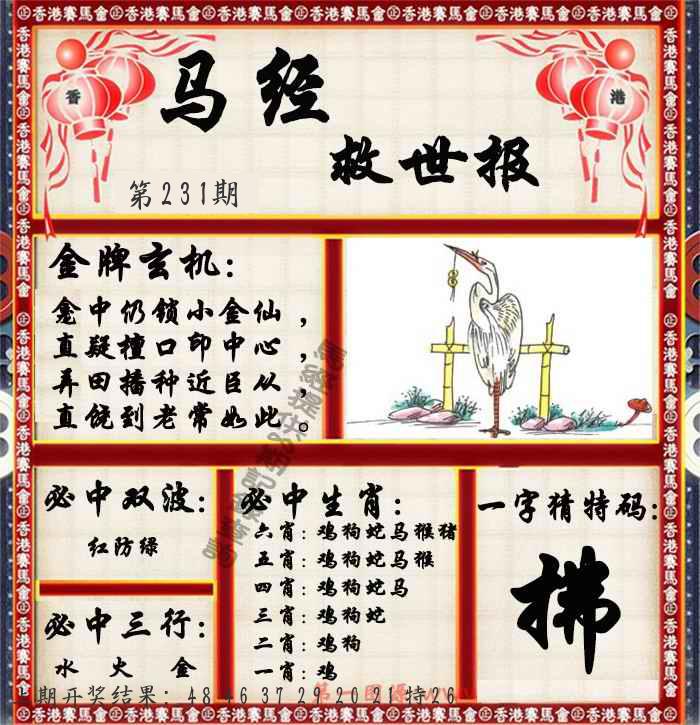 香港賽馬會
香
港
马经
救世报
第231期
金牌玄机:
龛中仍锁小金仙,
直疑檀口印中心,
弄田播种近臣从,
直饶到老常如此。
必中双波:
红防绿
必中三行:
水 火 金
必中生肖:
六肖: 鸡狗蛇马猴猪
五肖: 鸡狗蛇马猴
四肖: 鸡狗蛇马
三肖: 鸡狗蛇
二肖: 鸡狗
一肖: 鸡
一字猜特码:
拂
期开奖结果: 48 46 37 29 20 21特26
第一图